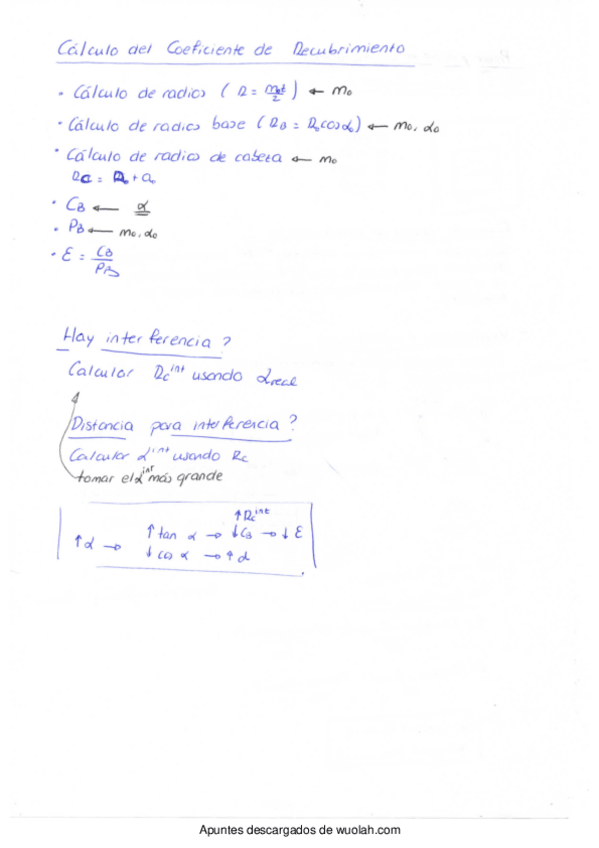 Cálculo del Coeficiente de Recubrimiento
• Cálculo de radios ( R = m₀t/2 ) ← m₀
• Cálculo de radios base ( R_B = R₀ cos α₀ ) ← m₀, α₀
• Cálculo de radios de cabeza ← m₀
R_C = R₀ + a₀
• C_B ← α
• P_B ← m₀, α₀
• ε = C_B / P_B
Hay interferencia ?
Calcular R_C^int usando α_real
Distancia para interferencia ?
Calcular α^int usando R_C
tomar el α^int más grande
↑ R_C^int
↑ α → ↑ tan α → ↓ C_B → ↓ ε
↓ cos α → ↑ d
Apuntes descargados de wuolah.com